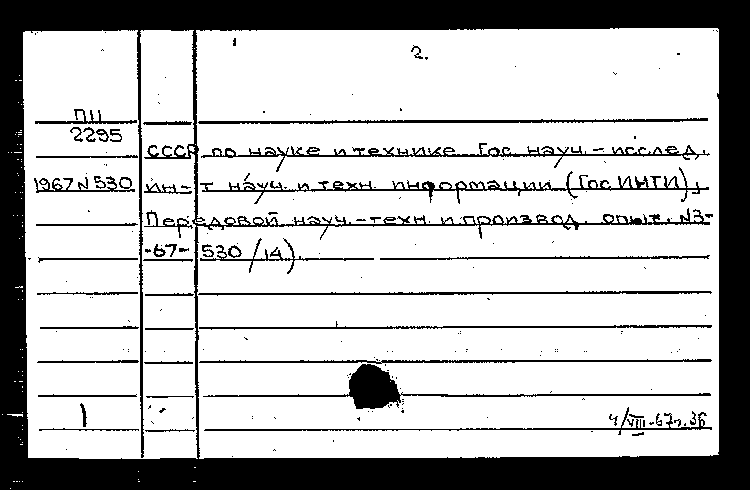 2.
П11
2295
СССР по науке и технике Гос. науч.-исслед.
1967 N 530 ин-т науч. и техн. информации (ГосИНТИ),
Передовой науч.-техн. и производ. опыт. N3-
-67-530/14).
4/VIII-67г.